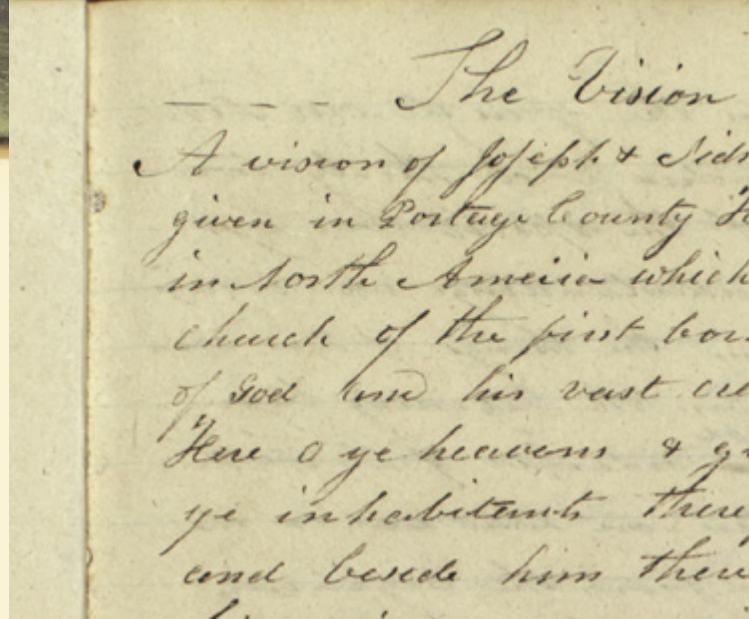 The Vision
A vision of Joseph & Sidn
given in Portage County H
in North America which
church of the first bor
of God and his vast cre
Here O ye heavens & gi
ye inhabitants there
and beside him there